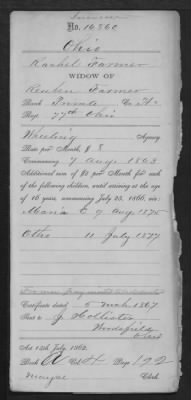 No. 14,360
Ohio
Rachel Farmer
WIDOW OF
Reuben Farmer
Rank Private Co. H
Regt. 77th Ohio
Wheeling Agency
Rate per Month, $ 8
Commencing 7 Aug 1863
Additional sum of $2 per month for each
of the following children, until arriving at the age
of 16 years, commencing July 25, 1866, viz:
Maria E 9 Aug 1875
Otto 11 July 1877
Certificate dated 5 Mch 1867
Sent to J. Hollister
Woodsfield
Ohio
Act 14th July, 1862.
Book A Vol. 4 Page 192
Clerk.